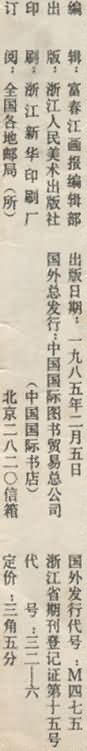 编辑：富春江画报编辑部
出版：浙江人民美术出版社
印刷：浙江新华印刷厂
订阅：全国各地邮局（所）
出版日期：一九八五年二月五日
国外总发行：中国国际图书贸易总公司
（中国国际书店）
北京二八二〇信箱
国外发行代号：M四七五
浙江省期刊登记证第十五号
代号：三二—六
定价：三角五分